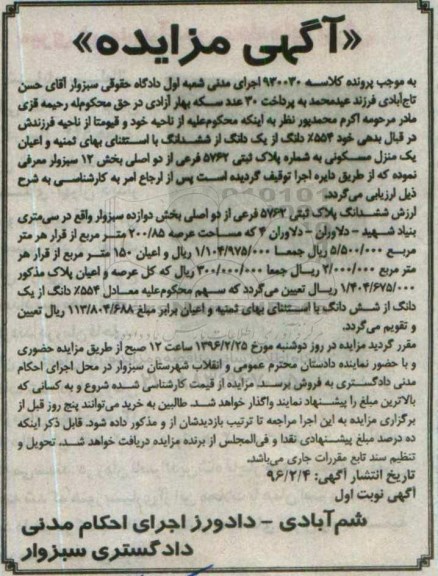 «آگهی مزایده»
به موجب پرونده کلاسه ۹۳۰۰۳۰ اجرای مدنی شعبه اول دادگاه حقوقی سبزوار آقای حسن
تاج‌آبادی فرزند عیدمحمد به پرداخت ۳۰ عدد سکه بهار آزادی در حق محکوم‌له رحیمه قزی
مادر مرحومه اکرم محمدپور نظر به اینکه محکوم‌علیه از ناحیه خود و قیومتا از ناحیه فرزندش
در قبال بدهی خود ۵۵۴٪ دانگ از یک دانگ از ششدانگ با استثنای بهای ثمنیه و اعیان
یک منزل مسکونی به شماره پلاک ثبتی ۵۷۶۲ فرعی از دو اصلی بخش ۱۲ سبزوار معرفی
نموده که از طریق دایره اجرا توقیف گردیده است پس از ارجاع امر به کارشناسی به شرح
ذیل ارزیابی می‌گردد.
ارزش ششدانگ پلاک ثبتی ۵۷۶۲ فرعی از دو اصلی بخش دوازده سبزوار واقع در سی‌متری
بنیاد شهید - دلاوران - دلاوران ۴ که مساحت عرصه ۲۰۰/۸۵ متر مربع از قرار هر متر
مربع ۵/۵۰۰/۰۰۰ ریال جمعا ۱/۱۰۴/۹۷۵/۰۰۰ ریال و اعیان ۱۵۰ متر مربع از قرار هر
متر مربع ۲/۰۰۰/۰۰۰ ریال جمعا ۳۰۰/۰۰۰/۰۰۰ ریال که کل عرصه و اعیان پلاک مذکور
۱/۴۰۴/۶۷۵/۰۰۰ ریال تعیین می‌گردد که سهم محکوم‌علیه معادل ۵۵۴٪ دانگ از یک
دانگ از شش دانگ با استثنای بهای ثمنیه و اعیان برابر مبلغ ۱۱۳/۸۰۴/۶۸۸ ریال تعیین
و تقویم می‌گردد.
مقرر گردید مزایده در روز دوشنبه مورخ ۱۳۹۶/۲/۲۵ ساعت ۱۲ صبح از طریق مزایده حضوری
و با حضور نماینده دادستان محترم عمومی و انقلاب شهرستان سبزوار در محل اجرای احکام
مدنی دادگستری به فروش برسد. مزایده از قیمت کارشناسی شده شروع و به کسانی که
بالاترین مبلغ را پیشنهاد نمایند واگذار خواهد شد. طالبین به خرید می‌توانند پنج روز قبل از
برگزاری مزایده به این اجرا مراجعه تا ترتیب بازدیدشان از و مذکور داده شود. قابل ذکر اینکه
ده درصد مبلغ پیشنهادی نقدا و فی‌المجلس از برنده مزایده دریافت خواهد شد. تحویل و
تنظیم سند تابع مقررات جاری می‌باشد.
تاریخ انتشار آگهی: ۹۶/۲/۴
آگهی نوبت اول
شم‌آبادی - دادورز اجرای احکام مدنی
دادگستری سبزوار